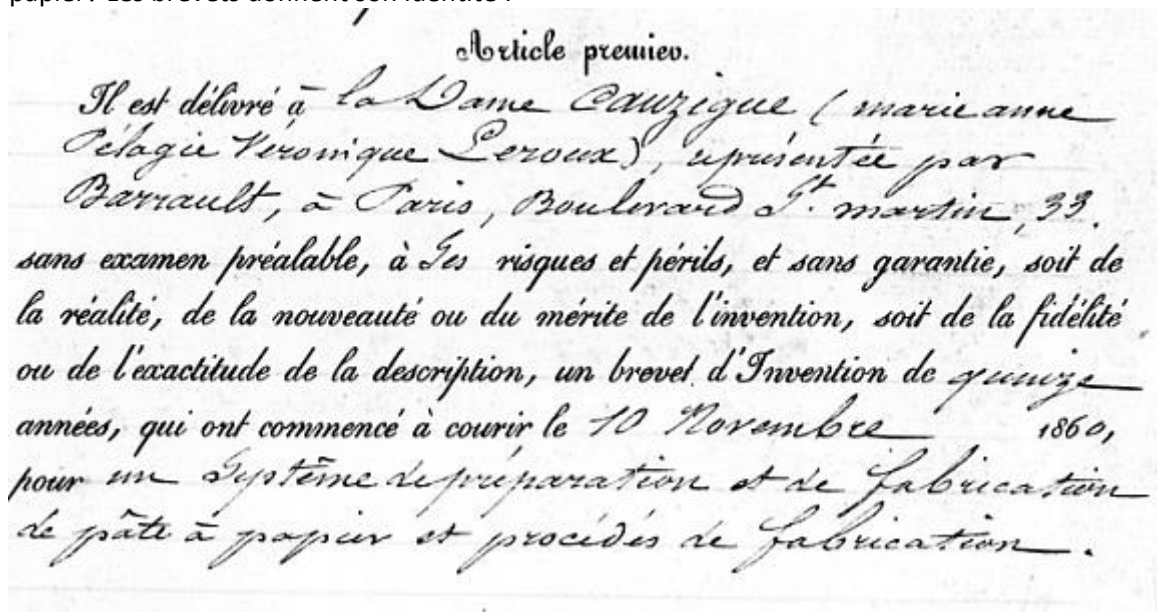 papier ? Les brevets donnent son identité :
Article premier.
Il est délivré à la Dame Cauzique (marie anne
Pélagie Véronique Leroux), représentée par
Barrault, à Paris, Boulevard St. martin, 33.
sans examen préalable, à Ses risques et périls, et sans garantie, soit de
la réalité, de la nouveauté ou du mérite de l'invention, soit de la fidélité
ou de l'exactitude de la description, un brevet d'Invention de quinze
années, qui ont commencé à courir le 10 Novembre 1860,
pour un Système de préparation et de fabrication
de pâte à papier et procédés de fabrication.